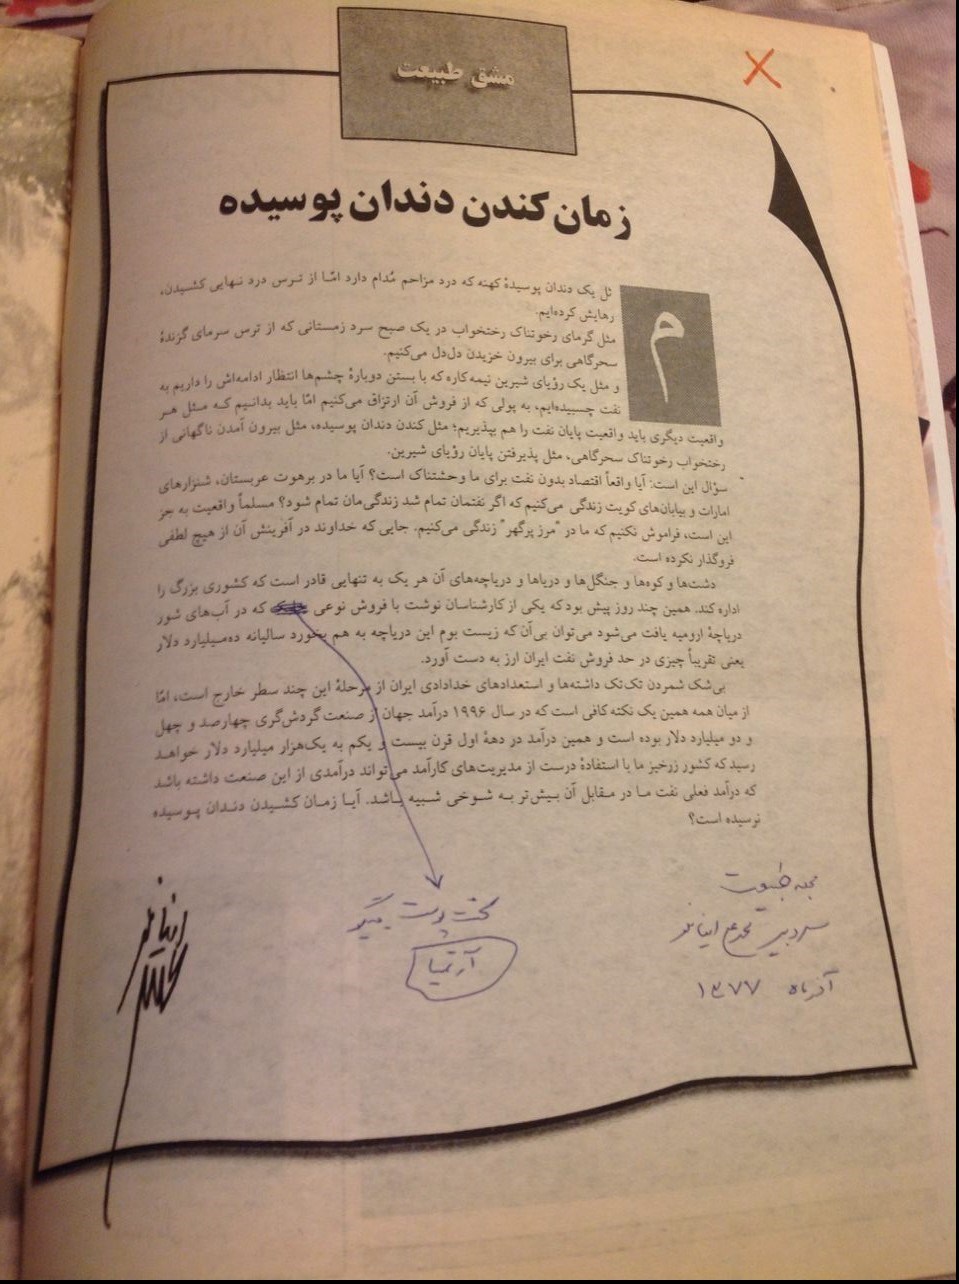 مشق طبیعت
زمان کندن دندان پوسیده
مثل یک دندان پوسیدهٔ کهنه که درد مزاحم مُدام دارد امّا از ترس درد نهایی کشیدن،
رهایش کرده‌ایم.
مثل گرمای رخوتناک رختخواب در یک صبح سرد زمستانی که از ترس سرمای گزندهٔ
سحرگاهی برای بیرون خزیدن دل‌دل می‌کنیم.
و مثل یک رؤیای شیرین نیمه‌کاره که با بستن دوبارهٔ چشم‌ها انتظار ادامه‌اش را داریم به
نفت چسبیده‌ایم، به پولی که از فروش آن ارتزاق می‌کنیم امّا باید بدانیم که مثل هر
واقعیت دیگری باید واقعیت پایان نفت را هم بپذیریم؛ مثل کندن دندان پوسیده، مثل بیرون آمدن ناگهانی از
رختخواب رخوتناک سحرگاهی، مثل پذیرفتن پایان رؤیای شیرین.
سؤال این است: آیا واقعاً اقتصاد بدون نفت برای ما وحشتناک است؟ آیا ما در برهوت عربستان، شنزارهای
امارات و بیابان‌های کویت زندگی می‌کنیم که اگر نفتمان تمام شد زندگی‌مان تمام شود؟ مسلماً واقعیت به جز
این است، فراموش نکنیم که ما در "مرز پرگهر" زندگی می‌کنیم. جایی که خداوند در آفرینش آن از هیچ لطفی
فروگذار نکرده است.
دشت‌ها و کوه‌ها و جنگل‌ها و دریاها و دریاچه‌های آن هر یک به تنهایی قادر است که کشوری بزرگ را
اداره کند. همین چند روز پیش بود که یکی از کارشناسان نوشت با فروش نوعی که در آب‌های شور
دریاچهٔ ارومیه یافت می‌شود می‌توان بی‌آن که زیست بوم این دریاچه به هم بخورد سالیانه ده‌میلیارد دلار
یعنی تقریباً چیزی در حد فروش نفت ایران ارز به دست آورد.
بی‌شک شمردن تک‌تک داشته‌ها و استعدادهای خدادادی ایران از مرحلهٔ این چند سطر خارج است، امّا
از میان همه همین یک نکته کافی است که در سال ۱۹۹۶ درآمد جهان از صنعت گردش‌گری چهارصد و چهل
و دو میلیارد دلار بوده است و همین درآمد در دههٔ اول قرن بیست و یکم به یک‌هزار میلیارد دلار خواهد
رسید که کشور زرخیز ما با استفادهٔ درست از مدیریت‌های کارآمد می‌تواند درآمدی از این صنعت داشته باشد
که درآمد فعلی نفت ما در مقابل آن بیش‌تر به شوخی شبیه باشد. آیا زمان کشیدن دندان پوسیده
نرسیده است؟
مجله طبیعت
سردبیر
آذرماه ۱۳۷۷
سخت پوست
آرتمیا